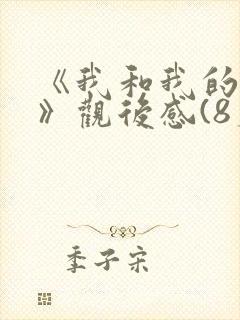 《我和我的
》觀後感(8
季子宋